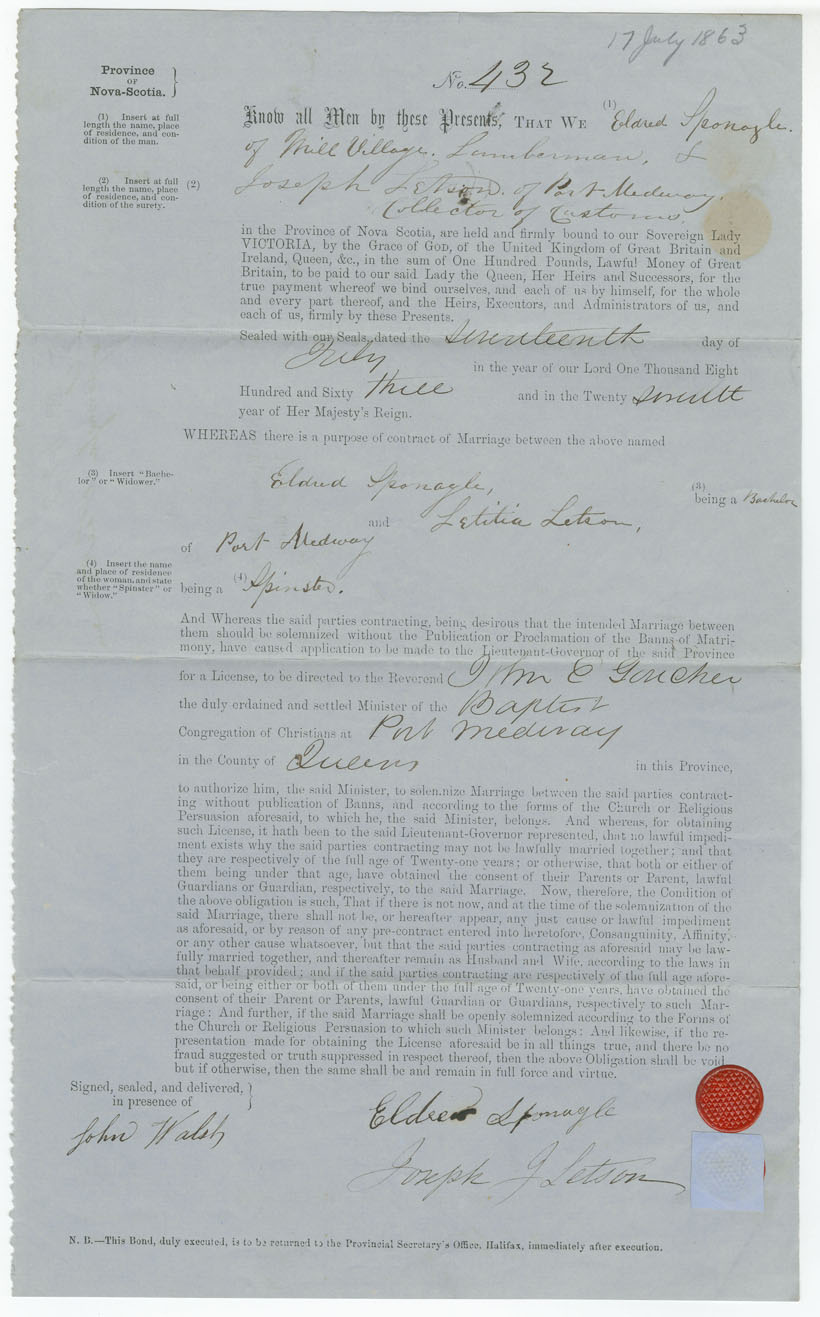 17 July 1863
Province
OF
Nova-Scotia.
No. 432
(1) Insert at full
length the name, place
of residence, and con-
dition of the man.
Know all Men by these Presents, THAT WE (1) Eldred Sponagle.
of Mill Village. Lumberman, &
(2) Insert at full
length the name, place
of residence, and con-
dition of the surety.
(2) Joseph Letson. of Port Medway.
Collector of Customs.
in the Province of Nova Scotia, are held and firmly bound to our Sovereign Lady
VICTORIA, by the Grace of GOD, of the United Kingdom of Great Britain and
Ireland, Queen, &c., in the sum of One Hundred Pounds, Lawful Money of Great
Britain, to be paid to our said Lady the Queen, Her Heirs and Successors, for the
true payment whereof we bind ourselves, and each of us by himself, for the whole
and every part thereof, and the Heirs, Executors, and Administrators of us, and
each of us, firmly by these Presents.
Sealed with our Seals, dated the seventeenth day of
July in the year of our Lord One Thousand Eight
Hundred and Sixty three and in the Twenty seventh
year of Her Majesty's Reign.
WHEREAS there is a purpose of contract of Marriage between the above named
(3) Insert "Bache-
lor" or "Widower."
Eldred Sponagle, (3) being a Bachelor
and Letitia Letson,
of Port Medway
(4) Insert the name
and place of residence
of the woman, and state
whether "Spinster" or
"Widow."
being a (4) Spinster.
And Whereas the said parties contracting, being desirous that the intended Marriage between
them should be solemnized without the Publication or Proclamation of the Banns of Matri-
mony, have caused application to be made to the Lieutenant-Governor of the said Province
for a License, to be directed to the Reverend John E Goucher
the duly ordained and settled Minister of the Baptist
Congregation of Christians at Port Medway
in the County of Queens in this Province,
to authorize him, the said Minister, to solemnize Marriage between the said parties contract-
ing without publication of Banns, and according to the forms of the Church or Religious
Persuasion aforesaid, to which he, the said Minister, belongs. And whereas, for obtaining
such License, it hath been to the said Lieutenant-Governor represented, that no lawful impedi-
ment exists why the said parties contracting may not be lawfully married together; and that
they are respectively of the full age of Twenty-one years; or otherwise, that both or either of
them being under that age, have obtained the consent of their Parents or Parent, lawful
Guardians or Guardian, respectively, to the said Marriage. Now, therefore, the Condition of
the above obligation is such, That if there is not now, and at the time of the solemnization of the
said Marriage, there shall not be, or hereafter appear, any just cause or lawful impediment
as aforesaid, or by reason of any pre-contract entered into heretofore, Consanguinity, Affinity,
or any other cause whatsoever, but that the said parties contracting as aforesaid may be law-
fully married together, and thereafter remain as Husband and Wife, according to the laws in
that behalf provided; and if the said parties contracting are respectively of the full age afore-
said, or being either or both of them under the full age of Twenty-one years, have obtained the
consent of their Parent or Parents, lawful Guardian or Guardians, respectively to such Mar-
riage: And further, if the said Marriage shall be openly solemnized according to the Forms of
the Church or Religious Persuasion to which such Minister belongs: And likewise, if the re-
presentation made for obtaining the License aforesaid be in all things true, and there be no
fraud suggested or truth suppressed in respect thereof, then the above Obligation shall be void,
but if otherwise, then the same shall be and remain in full force and virtue.
Signed, sealed, and delivered,
in presence of
John Walsh
Eldred Sponagle
Joseph J Letson
N. B.—This Bond, duly executed, is to be returned to the Provincial Secretary's Office, Halifax, immediately after execution.